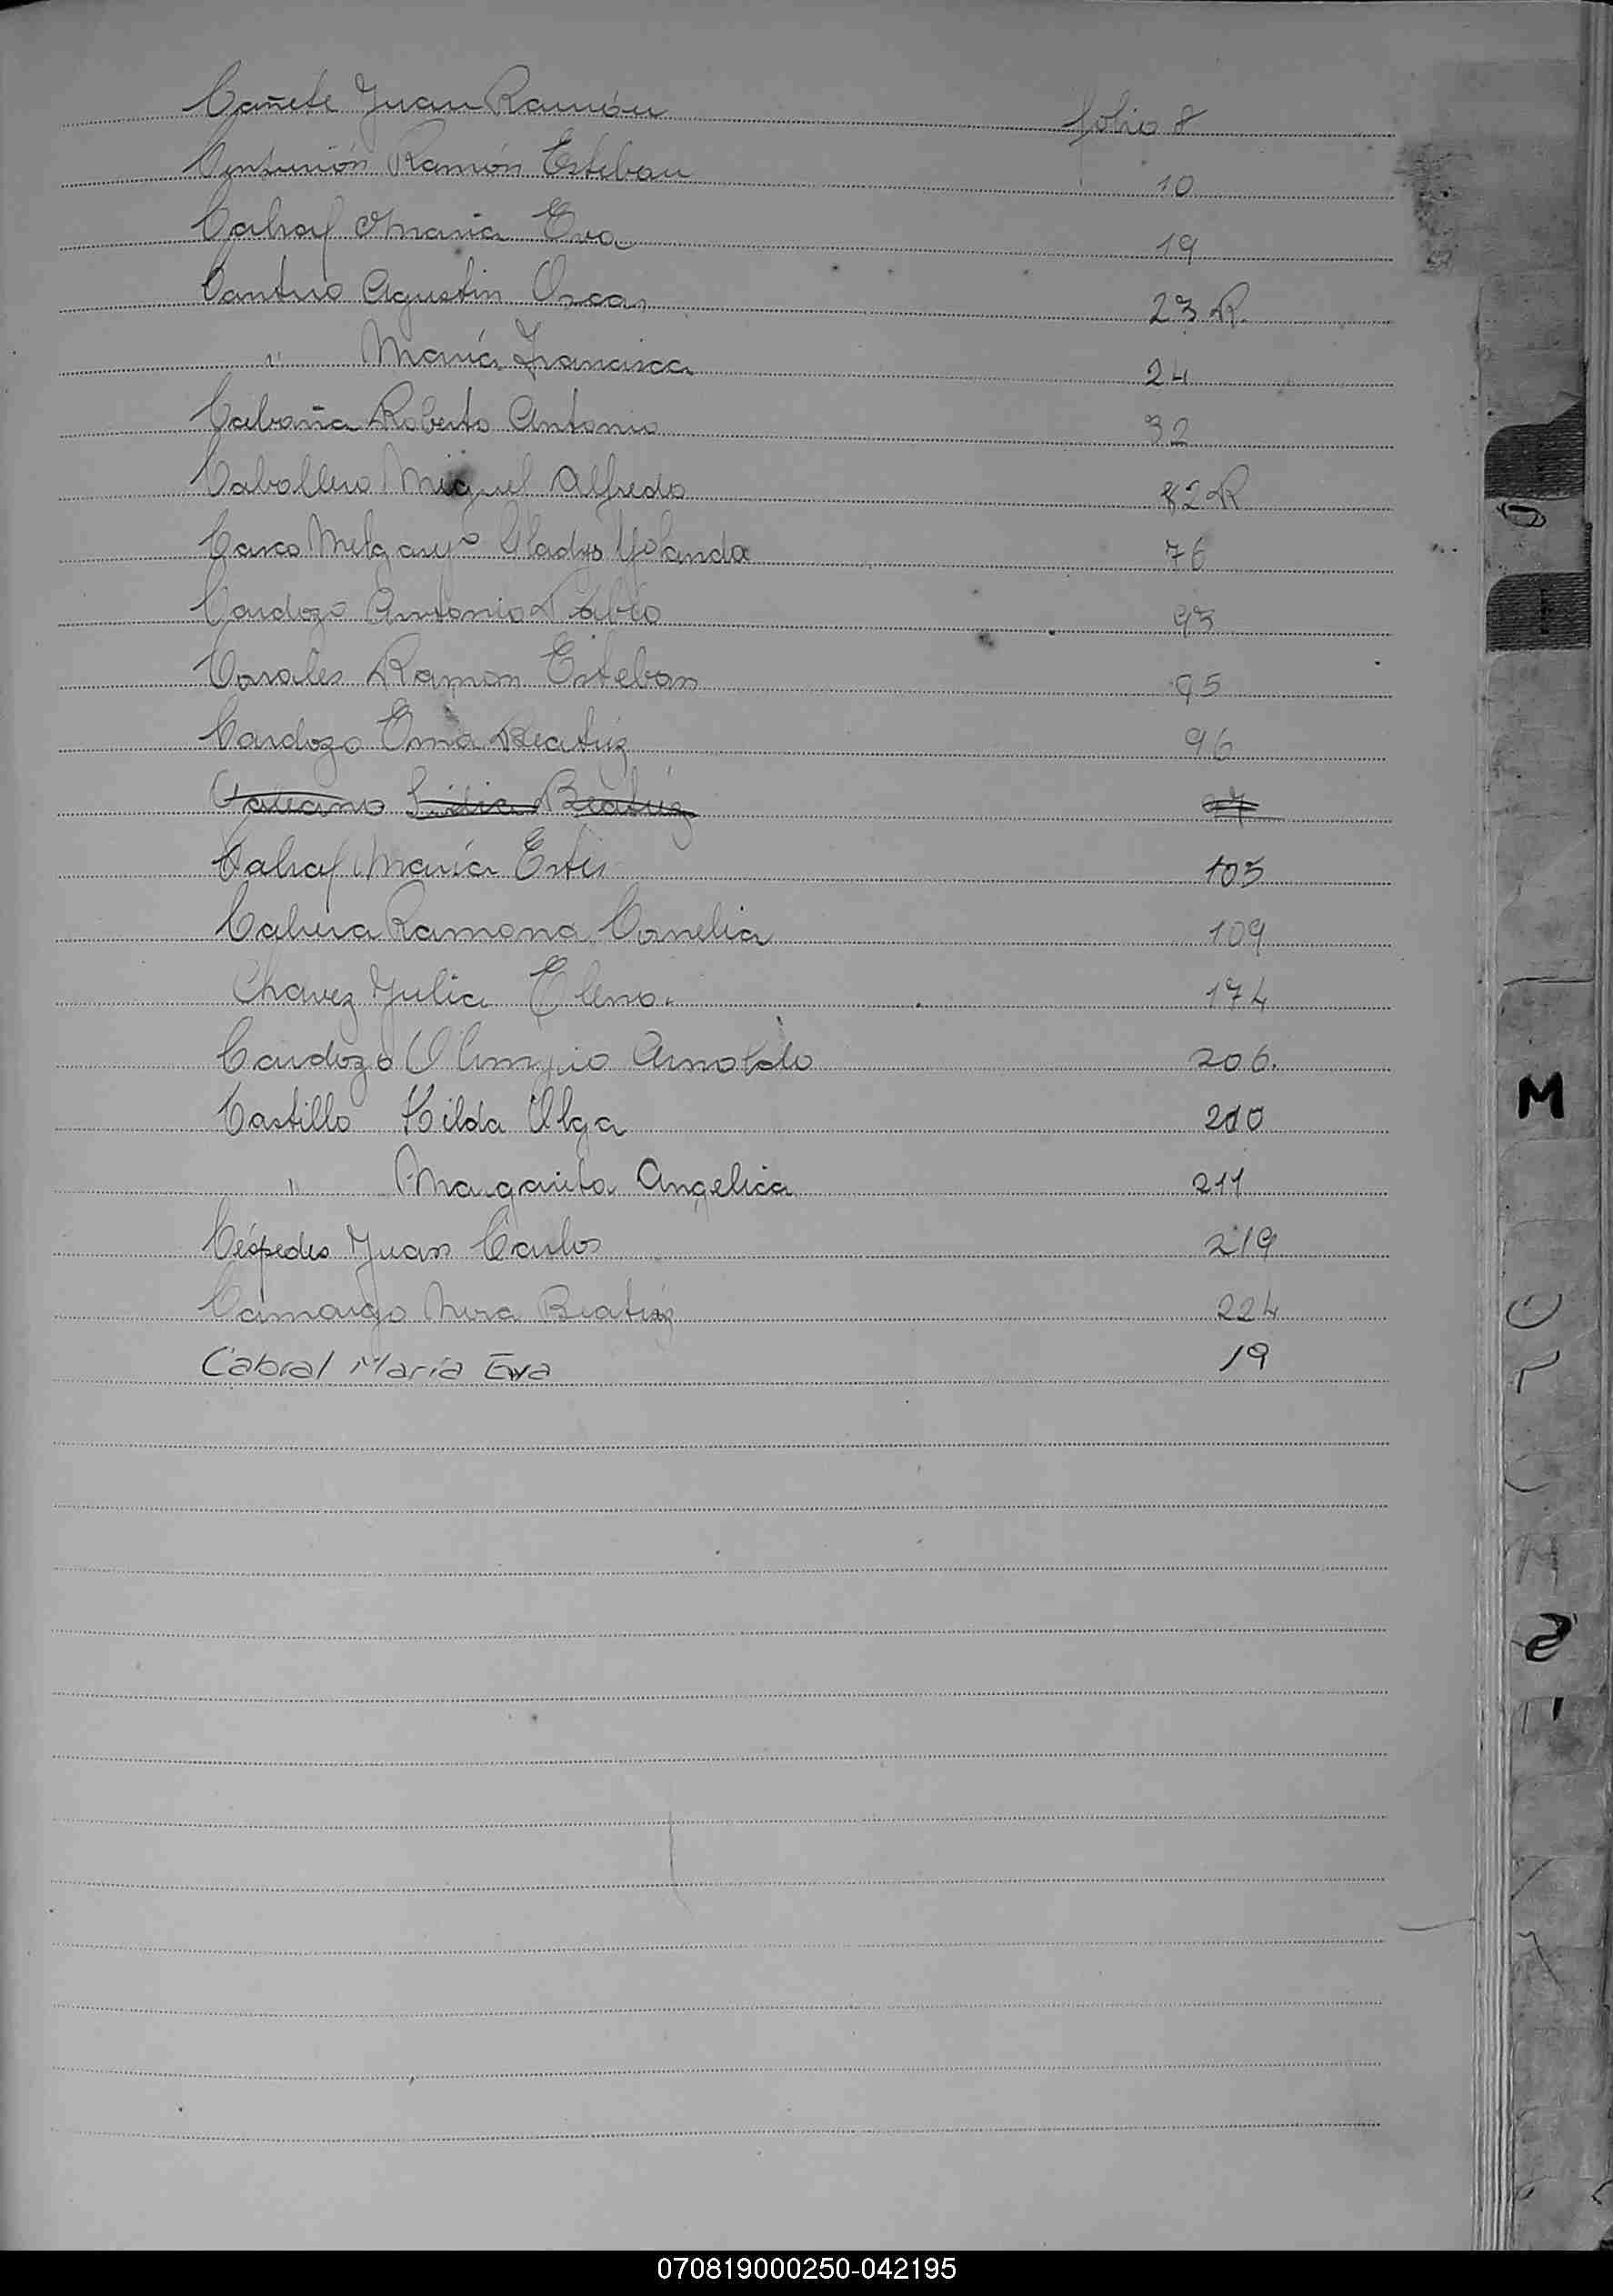 Cañete Juan Ramón folio 8
Centurión Ramón Esteban 10
Cabral Maria Eva 19
Cantero Agustin Oscar 23 R.
" María Francisca 24
Cabaña Roberto Antonio 32
Caballero Miguel Alfredo 82 R
Casco Melgarejo Gladys Yolanda 76
Cardozo Antonio Pablo 93
Corrales Ramon Esteban 95
Cardozo Ema Beatriz 96
Lidia Beatriz
Cabral María Ester 103
Cabrera Ramona Cornelia 109
Chavez Julia Elena. 174
Cardozo Olimpio Arnoldo 206.
Castillo Hilda Olga 210
" Margarita Angelica 211
Céspedes Juan Carlos 219
Camargo Mirra Beatriz 224
Cabral María Eva 19
M
070819000250-042195